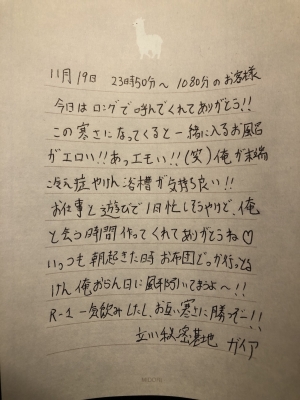 11月19日 23時50分〜1080分のお客様
今日はロングで呼んでくれてありがとう!!
この寒さになってくると一緒に入るお風呂
がエロい!!あっエモい!!(笑)俺が末端
冷え症やけん浴槽が気持ち良い!!
お仕事と遊びで1日忙しそうやけど、俺
と会う時間作ってくれてありがとうね♡
いっつも朝起きた時お布団でっか行っとる
けん俺おらん日に風邪引いてまうよ〜!!
R-1一気飲みしたし、お互い寒さに勝つぞー!!
立川秘密基地 ガイア